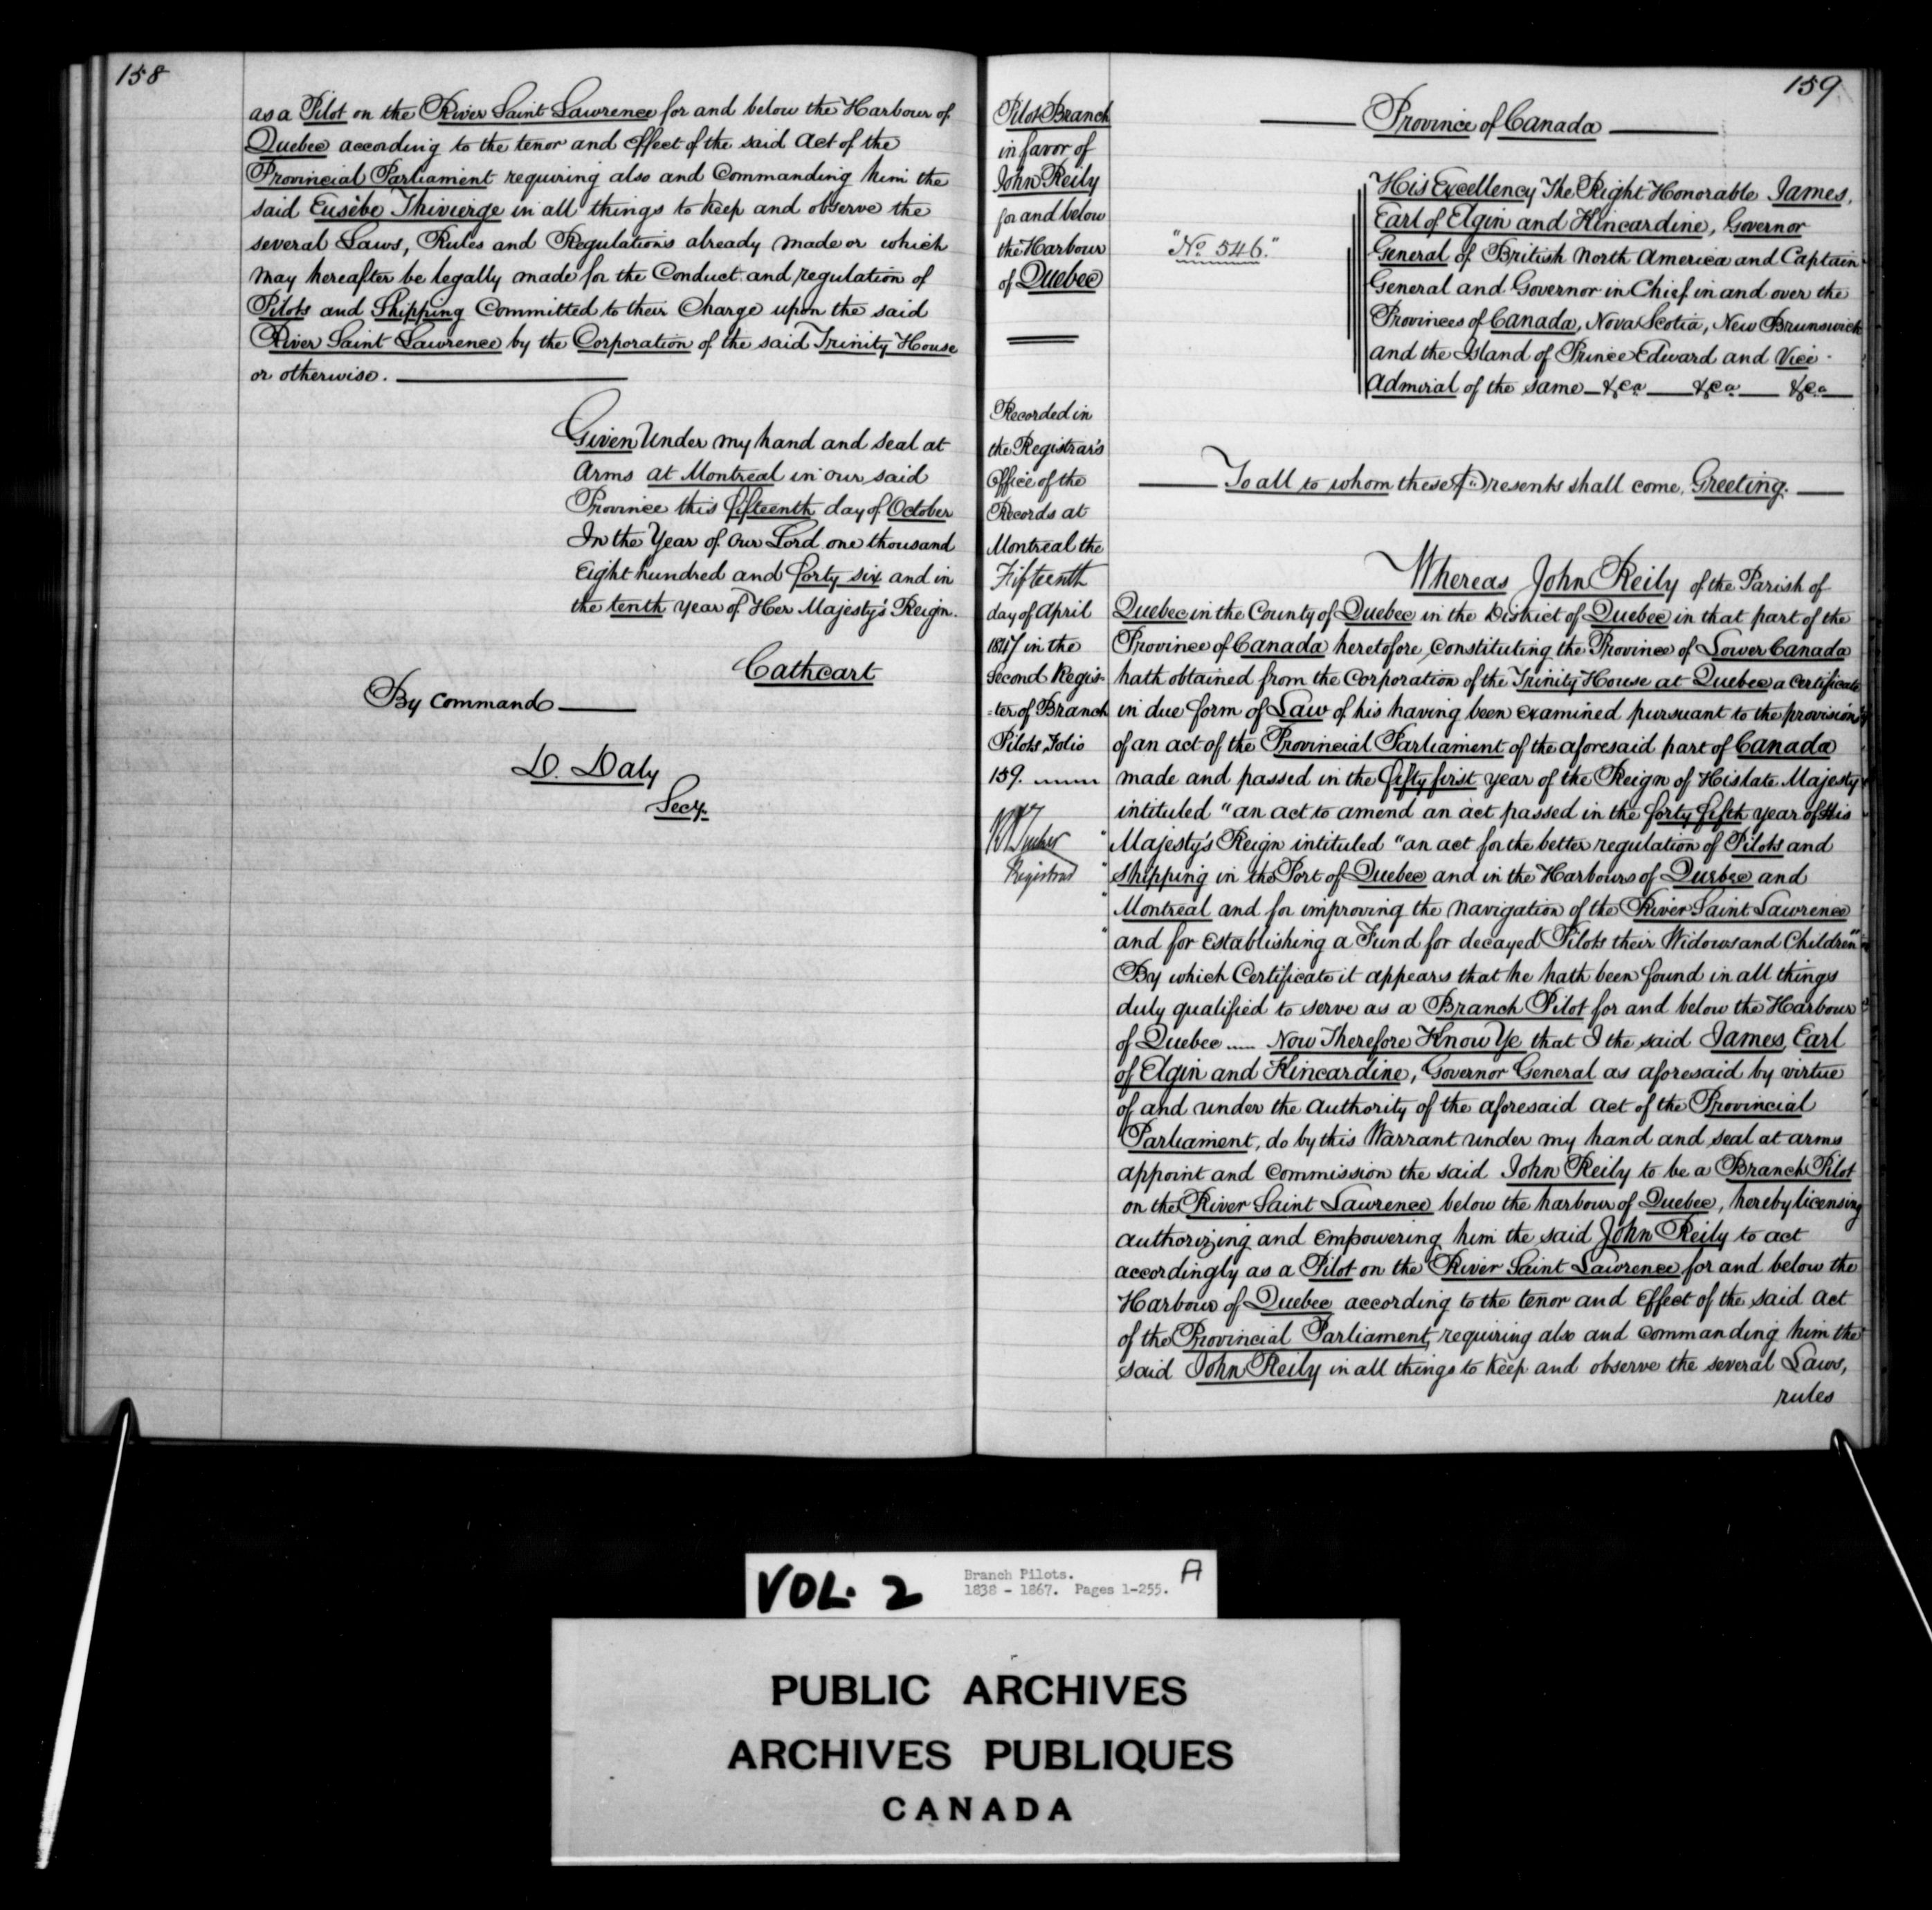 158
as a Pilot on the River Saint Lawrence for and below the Harbour of
Quebec according to the tenor and effect of the said Act of the
Provincial Parliament requiring also and Commanding him the
said Eusèbe Thivierge in all things to keep and observe the
several Laws, Rules and Regulations already made or which
may hereafter be legally made for the Conduct and regulation of
Pilots and Shipping Committed to their Charge upon the said
River Saint Lawrence by the Corporation of the said Trinity House
or otherwise.
Given Under my hand and Seal at
Arms at Montreal in our said
Province this fifteenth day of October
In the Year of Our Lord one thousand
Eight hundred and forty six and in
the tenth year of Her Majesty's Reign.
Cathcart
By Command
D. Daly
Secy.
159
Pilot Branch
in favor of
John Reily
for and below
the Harbour
of Quebec
Recorded in
the Registrar's
Office of the
Records at
Montreal the
Fifteenth
day of April
1847 in the
Second Regis-
-ter of Branch
Pilots Folio
159.
Registrar
Province of Canada
"No. 546."
His Excellency The Right Honorable James,
Earl of Elgin and Kincardine, Governor
General of British North America and Captain
General and Governor in Chief in and over the
Provinces of Canada, Nova Scotia, New Brunswick
and the Island of Prince Edward and Vice-
Admiral of the same &ca &ca &ca
To all to whom these Presents shall come, Greeting.
Whereas John Reily of the Parish of
Quebec in the County of Quebec in the District of Quebec in that part of the
Province of Canada heretofore Constituting the Province of Lower Canada
hath obtained from the Corporation of the Trinity House at Quebec a Certificate
in due form of Law of his having been examined pursuant to the provisions
of an act of the Provincial Parliament of the aforesaid part of Canada
made and passed in the fifty first year of the Reign of His late Majesty
intituled "an act to amend an act passed in the forty fifth year of His
" Majesty's Reign intituled "an act for the better regulation of Pilots and
" Shipping in the Port of Quebec and in the Harbours of Quebec and
" Montreal and for improving the navigation of the River Saint Lawrence
" and for Establishing a Fund for decayed Pilots their Widows and Children"
By which Certificate it appears that he hath been found in all things
duly qualified to serve as a Branch Pilot for and below the Harbour
of Quebec Now Therefore Know Ye that I the said James, Earl
of Elgin and Kincardine, Governor General as aforesaid by virtue
of and under the authority of the aforesaid act of the Provincial
Parliament, do by this Warrant under my hand and seal at arms
appoint and Commission the said John Reily to be a Branch Pilot
on the River Saint Lawrence below the harbour of Quebec, hereby licensing
authorizing and empowering him the said John Reily to act
accordingly as a Pilot on the River Saint Lawrence for and below the
Harbour of Quebec according to the tenor and Effect of the said act
of the Provincial Parliament, requiring also and commanding him the
said John Reily in all things to keep and observe the several Laws,
rules
VOL. 2
Branch Pilots.
1838 - 1867. Pages 1-255.
A
PUBLIC ARCHIVES
ARCHIVES PUBLIQUES
CANADA